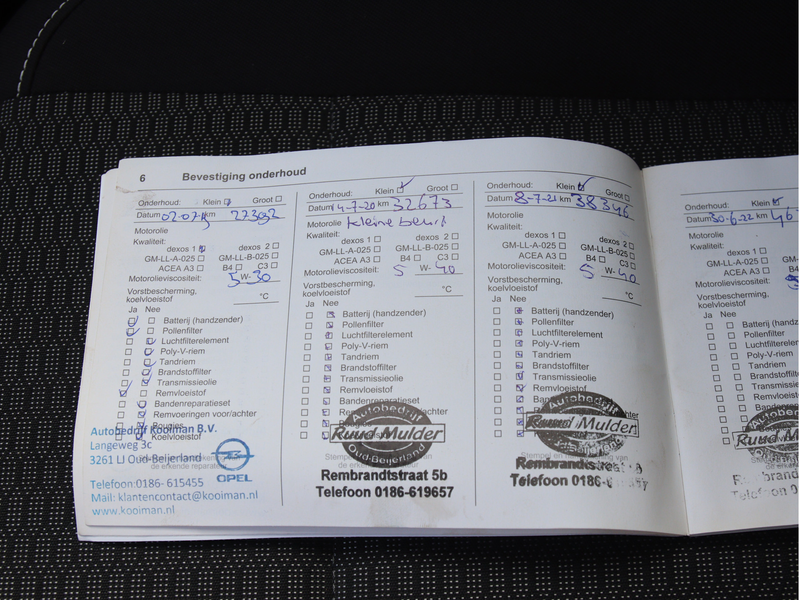 6 Bevestiging onderhoud
Onderhoud: Klein Groot
Datum 02-07-19 km 27392
Motorolie
Kwaliteit:
dexos 1 dexos 2
GM-LL-A-025 GM-LL-B-025
ACEA A3 B4 C3
Motorolieviscositeit: 5 W- 30
Vorstbescherming,
koelvloeistof °C
Ja Nee
Batterij (handzender)
Pollenfilter
Luchtfilterelement
Poly-V-riem
Tandriem
Brandstoffilter
Transmissieolie
Remvloeistof
Bandenreparatieset
Remvoeringen voor/achter
Bougies
Koelvloeistof
Autobedrijf Kooiman B.V.
Langeweg 3c
3261 LJ Oud-Beijerland
OPEL
Telefoon:0186- 615455
Mail: klantencontact@kooiman.nl
www.kooiman.nl
Onderhoud: Klein Groot
Datum 14-7-20 km 32673
Motorolie kleine beurt
Kwaliteit:
dexos 1 dexos 2
GM-LL-A-025 GM-LL-B-025
ACEA A3 B4 C3
Motorolieviscositeit: 5 W- 40
Vorstbescherming,
koelvloeistof °C
Ja Nee
Batterij (handzender)
Pollenfilter
Luchtfilterelement
Poly-V-riem
Tandriem
Brandstoffilter
Transmissieolie
Remvloeistof
Bandenreparatieset
Autobedrijf
Ruud Mulder
Oud-Beijerland
Rembrandtstraat 5b
Telefoon 0186-619657
Onderhoud: Klein Groot
Datum 8-7-21 km 38346
Motorolie
Kwaliteit:
dexos 1 dexos 2
GM-LL-A-025 GM-LL-B-025
ACEA A3 B4 C3
Motorolieviscositeit: 5 W- 40
Vorstbescherming,
koelvloeistof °C
Ja Nee
Batterij (handzender)
Pollenfilter
Luchtfilterelement
Poly-V-riem
Tandriem
Brandstoffilter
Transmissieolie
Remvloeistof
Autobedrijf
Ruud Mulder
Rembrandtstraat
Telefoon 0186-
Onderhoud: Klein
Datum 30-6-22 km 46
Motorolie
Kwaliteit:
dexos 1
GM-LL-A-025
ACEA A3
Motorolieviscositeit:
Vorstbescherming,
koelvloeistof
Ja Nee
Batterij (handz
Pollenfilter
Luchtfilterelem
Poly-V-riem
Tandriem
Brandstoffilt
Transmissieo
Remvloeistof
Ruud Mulder